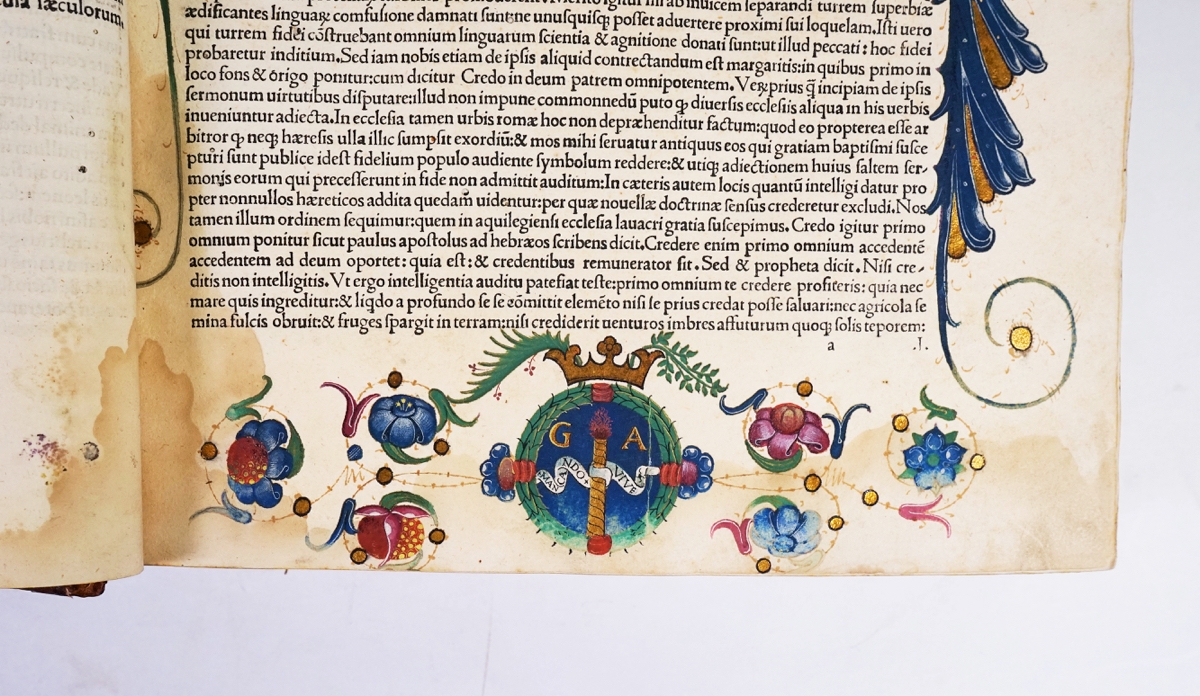 uia sæculorum,
ædificantes linguaꝝ comfusione damnati sunt:ne unusquisqꝫ posset aduertere proximi sui loquelam.Isti uero
qui turrem fidei cōstruebant omnium linguarum scientia & agnitione donati sunt:ut illud peccati: hoc fidei
probaretur inditium.Sed iam nobis etiam de ipsis aliquid contrectandum est margaritis:in quibus primo in
loco fons & origo ponitur:cum dicitur Credo in deum patrem omnipotentem. Veꝝ prius q̄ incipiam de ipsis
sermonum uirtutibus disputare:illud non impune commonnedū puto qꝫ diuersis ecclesiis aliqua in his uerbis
inueniuntur adiecta.In ecclesia tamen urbis romæ hoc non depræhenditur factum:quod eo propterea esse ar
bitror qꝫ neqꝫ hæresis ulla illic sumpsit exordiū:& mos mihi seruatur antiquus eos qui gratiam baptismi susce
pturi sunt publice idest fidelium populo audiente symbolum reddere:& utiqꝫ adiectionem huius saltem ser-
monis eorum qui precesserunt in fide non admittit auditum:In cæteris autem locis quantū intelligi datur pro
pter nonnullos hæreticos addita quedam uidentur:per quæ nouellæ doctrinæ sensus crederetur excludi.Nos
tamen illum ordinem sequimur:quem in aquilegiensi ecclesia lauacri gratia suscepimus. Credo igitur primo
omnium ponitur sicut paulus apostolus ad hebræos scribens dicit.Credere enim primo omnium accedentē
accedentem ad deum oportet: quia est: & credentibus remunerator sit. Sed & propheta dicit. Nisi cre-
ditis non intelligitis. Vt ergo intelligentia auditu patefiat teste:primo omnium te credere profiteris: quia nec
mare quis ingreditur:& liqdo a profundo se se cōmittit elemēto nisi se prius credat posse saluari:nec agricola se
mina sulcis obruit:& fruges spargit in terram:nisi crediderit uenturos imbres affuturum quoqꝫ solis teporem:
a .I.
G A
NDO VIVE